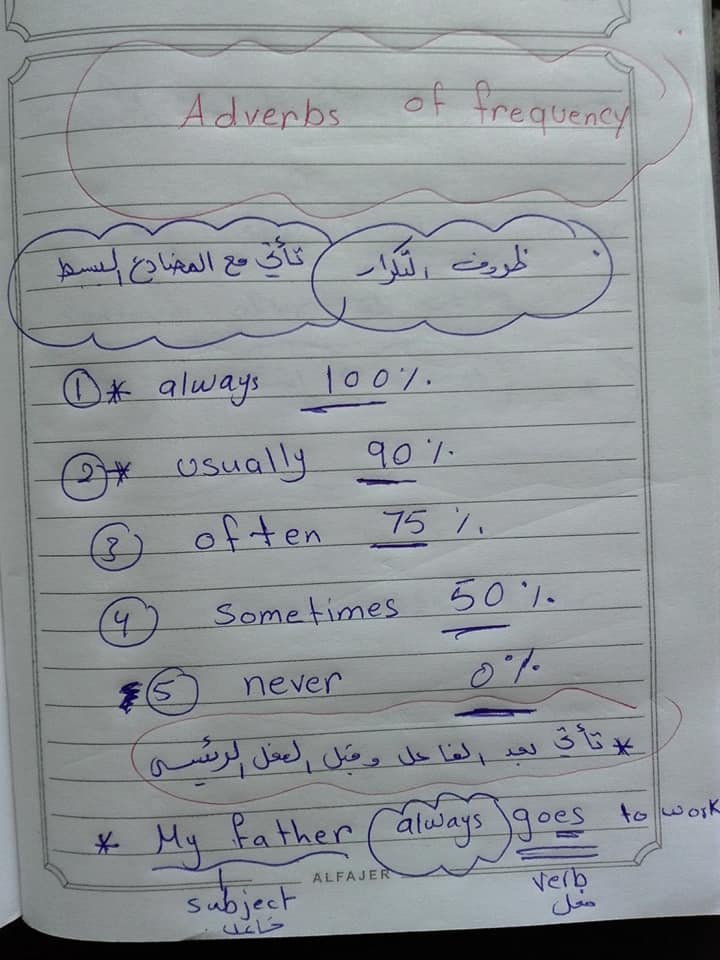 Adverbs of frequency
ظروف التكرار
تأتي مع المضارع البسيط
① * always 100%.
② * usually 90%.
③ often 75%.
④ Sometimes 50%.
⑤ never 0%.
* تأتي بعد الفاعل وقبل الفعل الرئيسي
* My father always goes to work
ALFAJER
subject
فاعل
verb
فعل